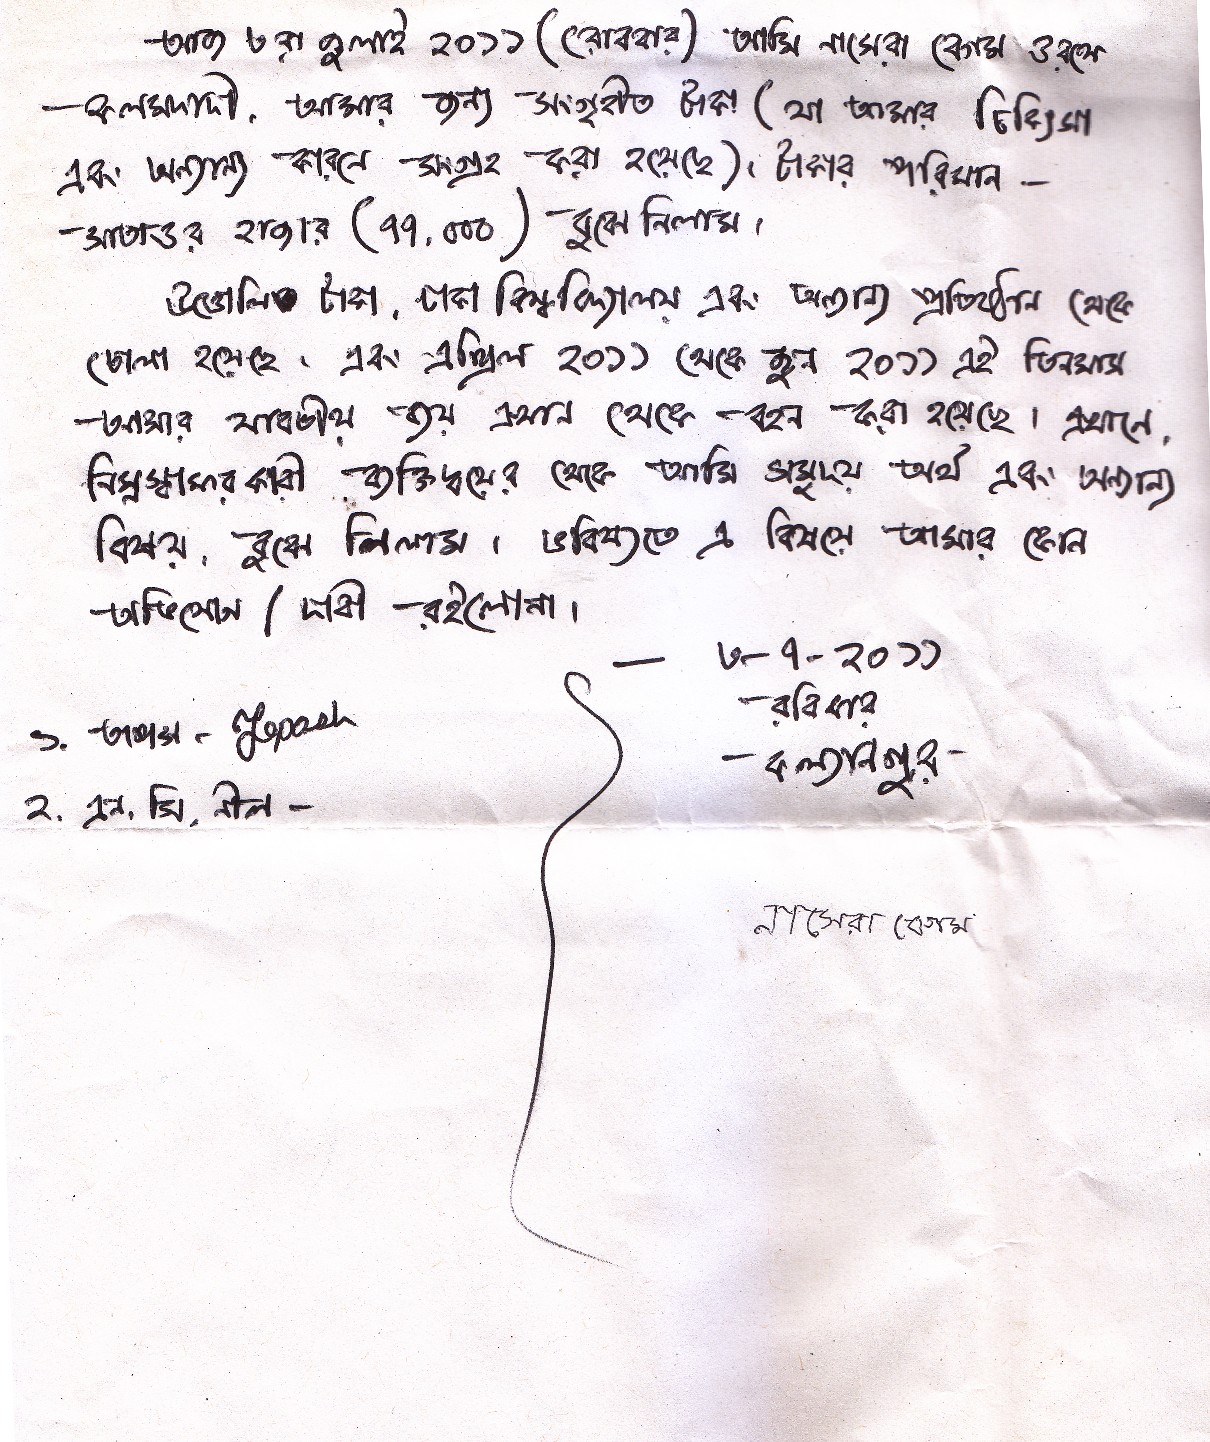 আজ ৩রা জুলাই ২০১১ (রোববার) আমি নাসেরা বেগম ওরফে
কলমদাদী, আমার জন্য সংগৃহীত টাকা (যা আমার চিকিৎসা
এবং অন্যান্য কারনে সংগ্রহ করা হয়েছে)। টাকার পরিমান –
সাতাত্তর হাজার (৭৭,০০০) বুঝে নিলাম।
উত্তোলিত টাকা, ঢাকা বিশ্ববিদ্যালয় এবং অন্যান্য প্রতিষ্ঠান থেকে
তোলা হয়েছে। এবং এপ্রিল ২০১১ থেকে জুন ২০১১ এই তিনমাস
আমার যাবতীয় ব্যয় এখান থেকে বহন করা হয়েছে। এখানে,
নিম্নস্বাক্ষরকারী ব্যক্তিদ্বয়ের থেকে আমি সমুদয় অর্থ এবং অন্যান্য
বিষয়, বুঝে নিলাম। ভবিষ্যতে এ বিষয়ে আমার কোন
অভিযোগ / দাবী রইলোনা।
— ৩-৭-২০১১
রবিবার
১. তাপস - Tapash
কল্যানপুর -
২. এন. সি. নীল -
নাসেরা বেগম